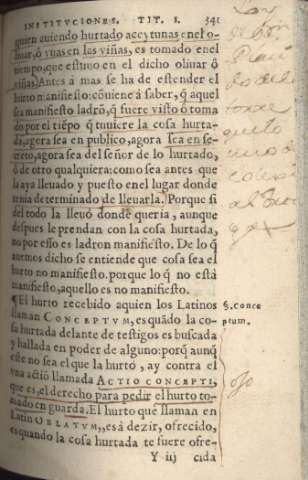 INSTITVCIONES. TIT. I. 341
guien auiendo hurtado azeytunas enel o-
liuar, ó vuas en las viñas, es tomado enel
tiempo, que estuuo en el dicho oliuar ó
viñas. Antes á mas se ha de estender el
hurto manifiesto: cóuiene á saber, q̃ aquel
sea manifiesto ladró, q̃ fuere visto ó toma
do por el tiẽpo q̃ tuuiere la cosa hurta-
da, agora sea en publico, agora sea en se-
creto, agora sea del señor de lo hurtado,
ó de otro qualquiera: como sea antes que
la aya lleuado y puesto enel lugar donde
tenia determinado de lleuarla. Porque si
del todo la lleuó donde queria, aunque
despues le prendan con la cosa hurtada,
no por esso es ladron manifiesto. De lo q̃
auemos dicho se entiende que cosa sea el
hurto no manifiesto. porque lo q̃ no está
manifiesto, aquello es no manifiesto.
¶El hurto recebido aquien los Latinos
llaman CONCEPTVM, es quãdo la co-
sa hurtada delante de testigos es buscada
y hallada en poder de alguno: porq̃ aunq̃
este no sea el que la hurtó, ay contra el
vna actiõ llamada ACTIO CONCEPTI,
que es, el derecho para pedir el hurto to-
mado en guarda. El hurto qué llaman en
Latin OBLATVM, esá dezir, ofrecido,
es quando la cosa hurtada te fuere ofre-
Y iij cida
§. conce
ptum.